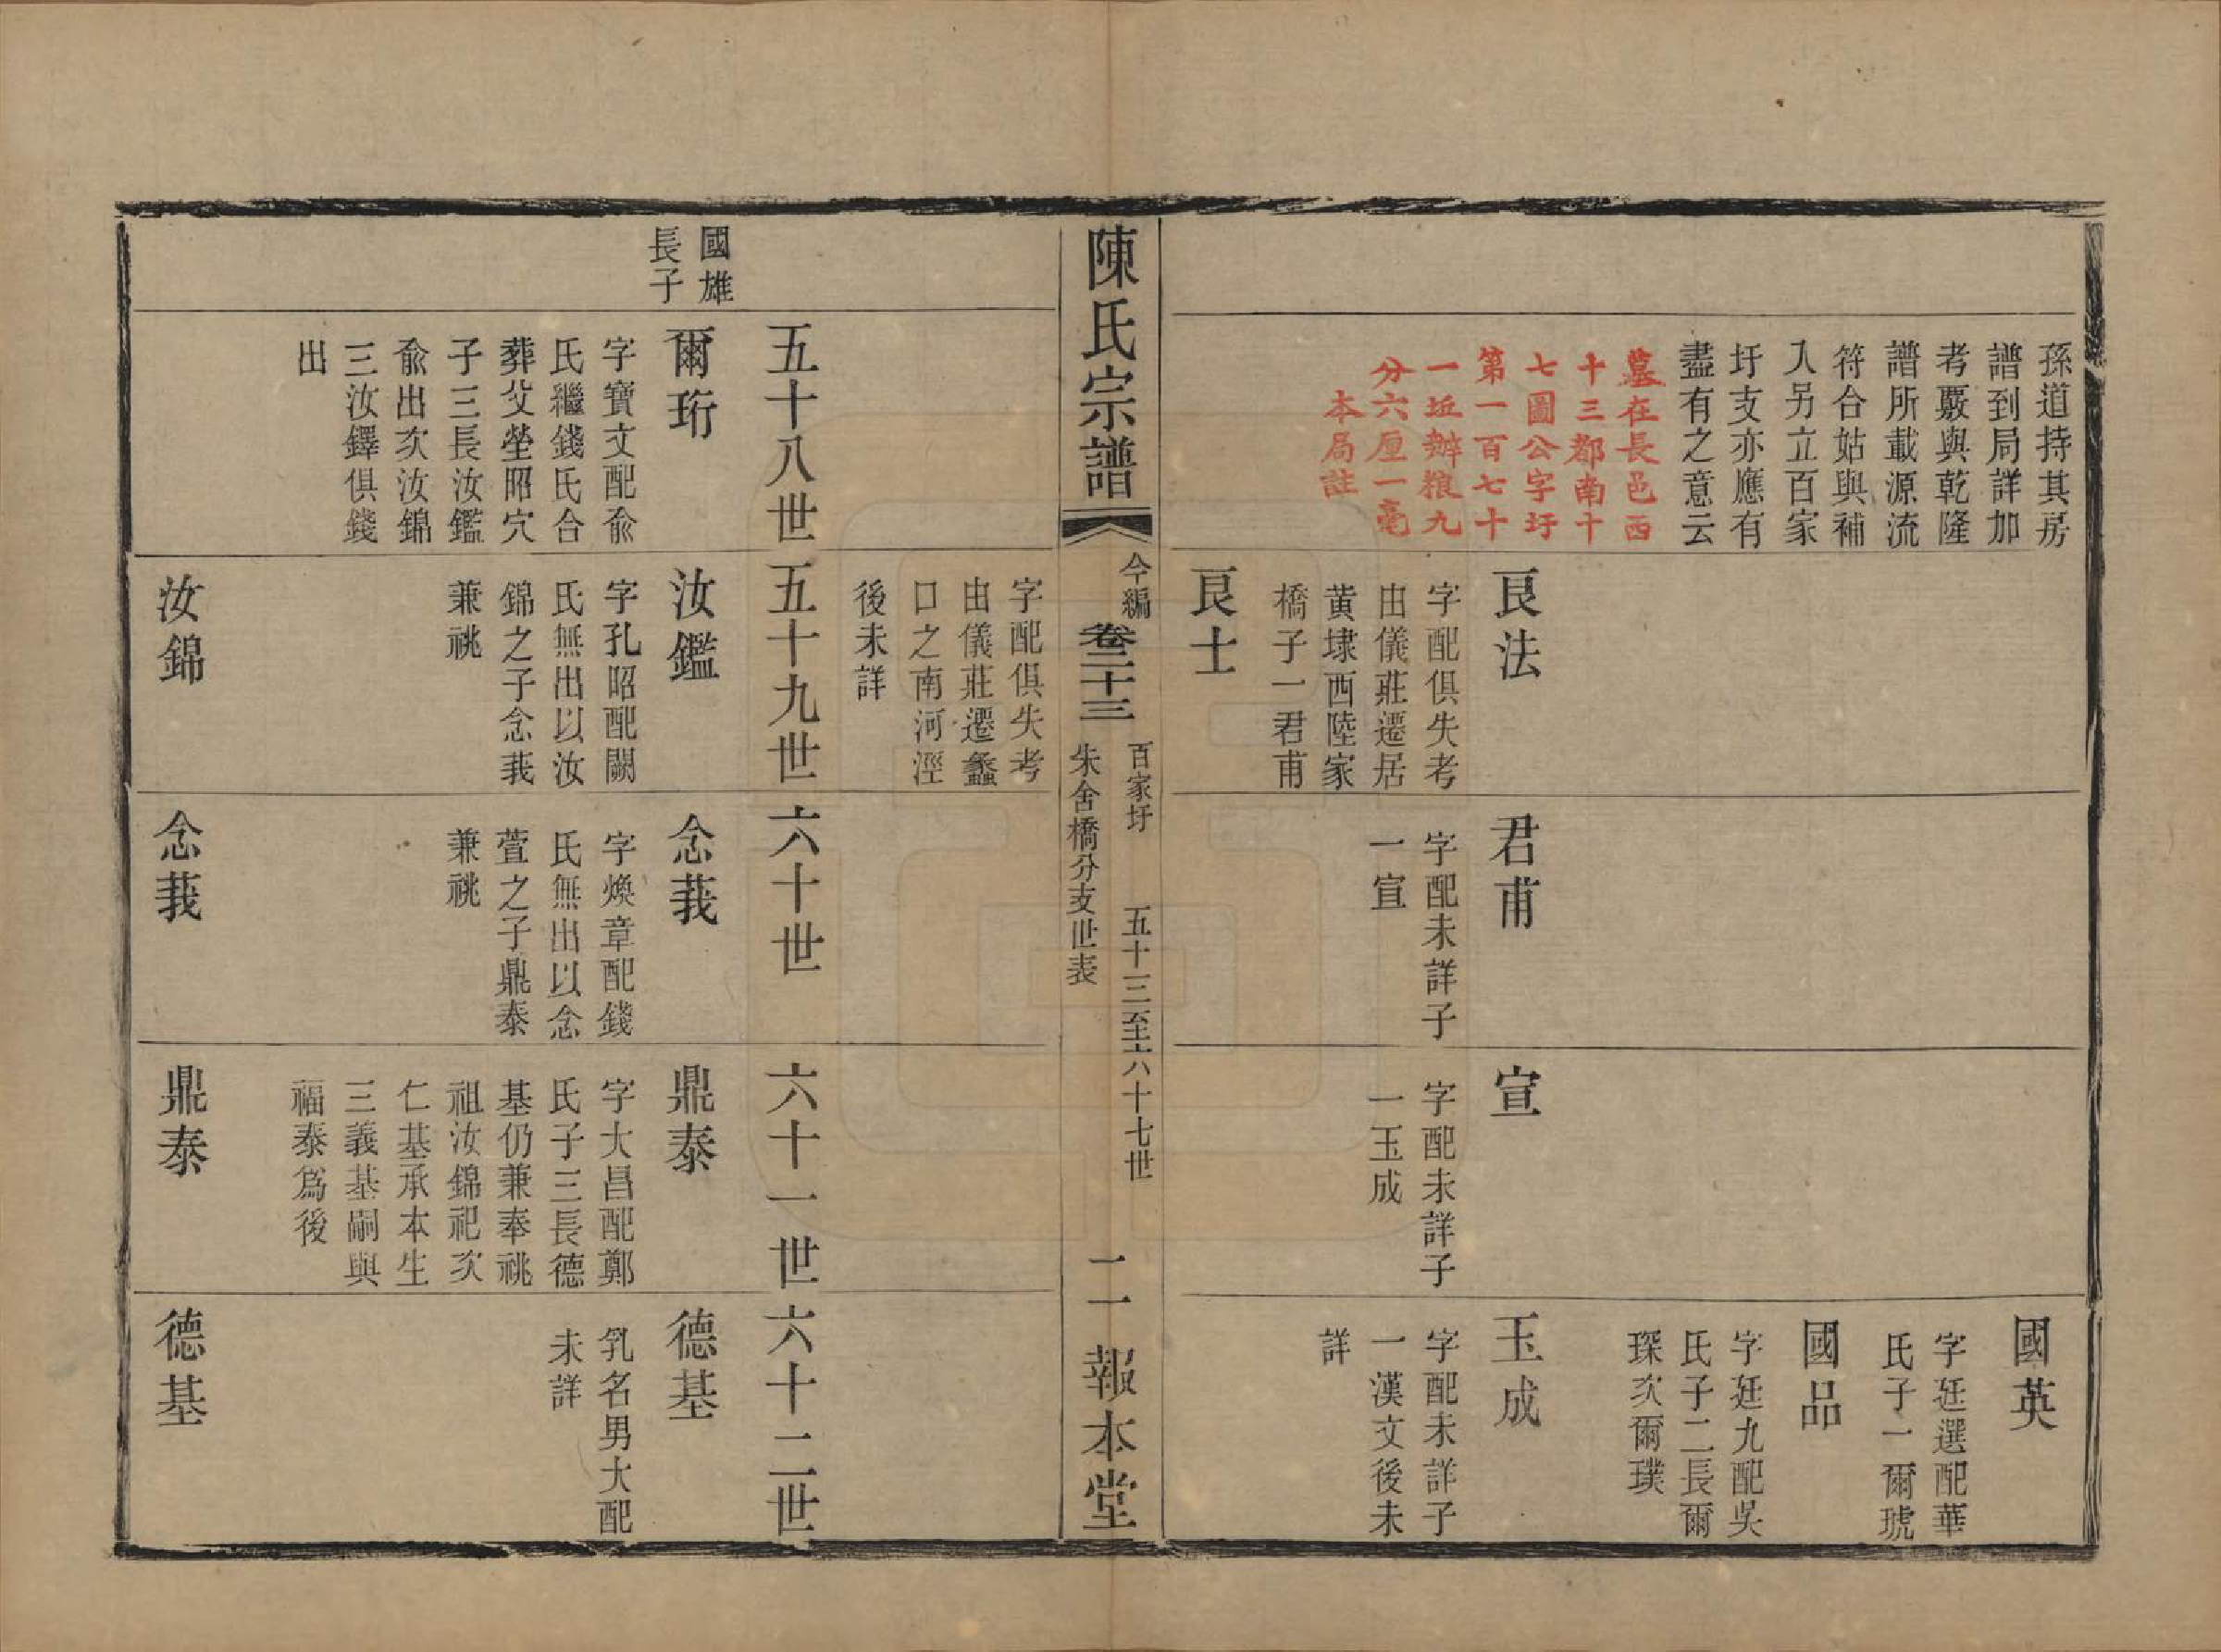 孫道持其房
譜到局詳加
考覈與乾隆
譜所載源流
符合姑與補
入另立百家
圩支亦應有
盡有之意云
墓在長邑西
十三都南十
七圖公字圩
第一百七十
一坵辦粮九
分六厘一毫
本局註
良法
字配俱失考
由儀莊遷居
黄埭西陸家
橋子一君甫
良士
君甫
字配未詳子
一宣
宣
字配未詳子
一玉成
國英
字廷選配華
氏子一爾琥
國品
字廷九配吳
氏子二長爾
琛次爾璞
玉成
字配未詳子
一漢文後未
詳
陳氏宗譜
今編
卷二十三
百家圩
朱舍橋分支世表
五十三至六十七世
二一
報本堂
字配俱失考
由儀莊遷蠡
口之南河涇
後未詳
國雄
長子
五十八世
爾珩
字寶文配俞
氏繼錢氏合
葬父塋昭穴
子三長汝鑑
俞出次汝錦
三汝鐸俱錢
出
五十九世
汝鑑
字孔昭配闕
氏無出以汝
錦之子念莪
兼祧
汝錦
六十世
念莪
字煥章配錢
氏無出以念
萱之子鼎泰
兼祧
念莪
六十一世
鼎泰
字大昌配鄭
氏子三長德
基仍兼奉祧
祖汝錦祀次
仁基承本生
三義基嗣與
福泰爲後
鼎泰
六十二世
德基
乳名男大配
未詳
德基